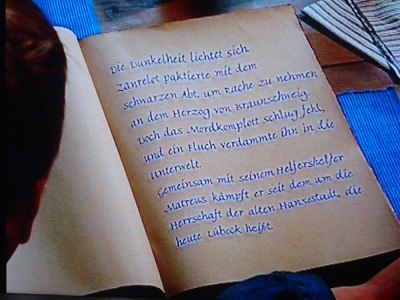 Die Dunkelheit lichtet sich.
Zanrelot paktierte mit dem
schwarzen Abt, um Rache zu nehmen
an dem Herzog von Braunschweig.
Doch das Mordkomplott schlug fehl,
und ein Fluch verdammte ihn in die
Unterwelt.
Gemeinsam mit seinem Helfershelfer
Matreus kämpft er seit dem um die
Herrschaft der alten Hansestadt, die
heute Lübeck heißt.